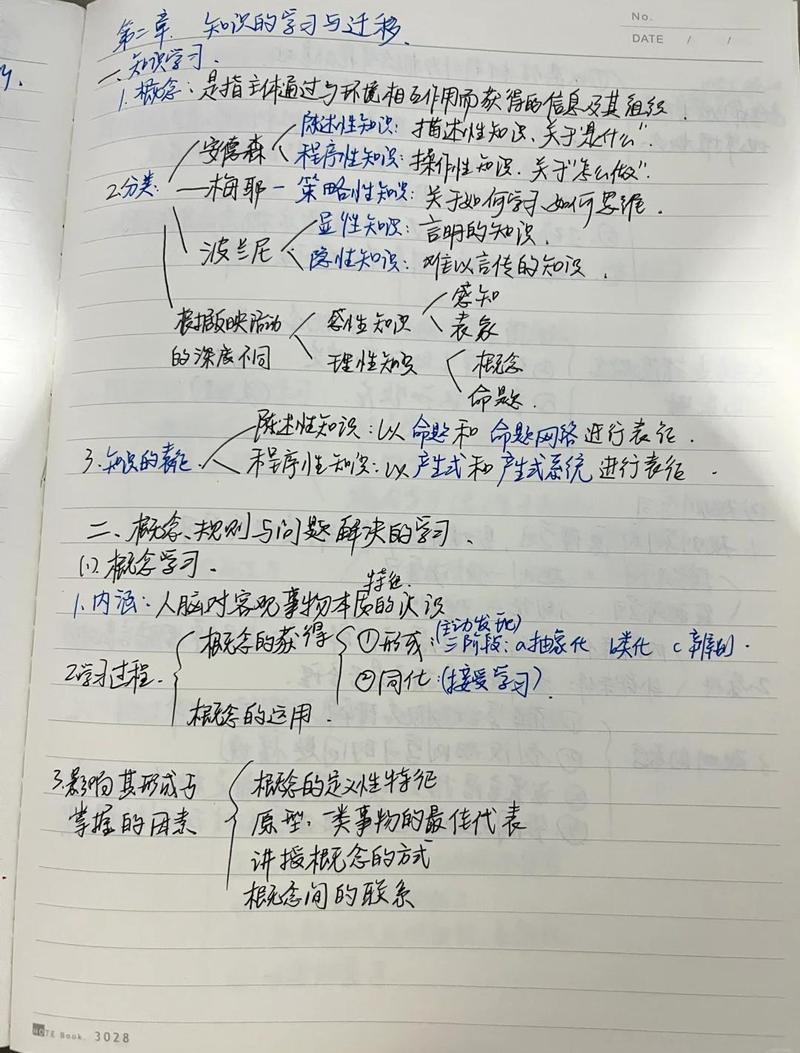 No.
DATE / /
第二章. 知识的学习与迁移.
一. 知识学习.
1. 概念: 是指主体通过与环境相互作用而获得的信息及其组织.
2. 分类:
安德森
陈述性知识: 描述性知识. 关于"是什么".
程序性知识: 操作性知识. 关于"怎么做".
梅耶 — 策略性知识: 关于如何学习、如何思维.
波兰尼
显性知识: 言明的知识.
隐性知识: 难以言传的知识.
根据反映活动
的深度不同
感性知识
感知
表象
理性知识
概念
命题.
3. 知识的表征.
陈述性知识: 以命题和命题网络进行表征.
程序性知识: 以产生式和产生式系统进行表征.
二、概念、规则与问题解决的学习.
(1). 概念学习.
特征.
1. 内涵: 人脑对客观事物本质的认识
2. 学习过程.
概念的获得
(主动发现)
①形成: 三阶段: a抽象化 b类化 c辨别.
②同化: (接受学习).
概念的运用.
3. 影响其形成与
掌握的因素
概念的定义性特征
原型: 一类事物的最佳代表
讲授概念的方式
概念间的联系
NOTE Book. 3028